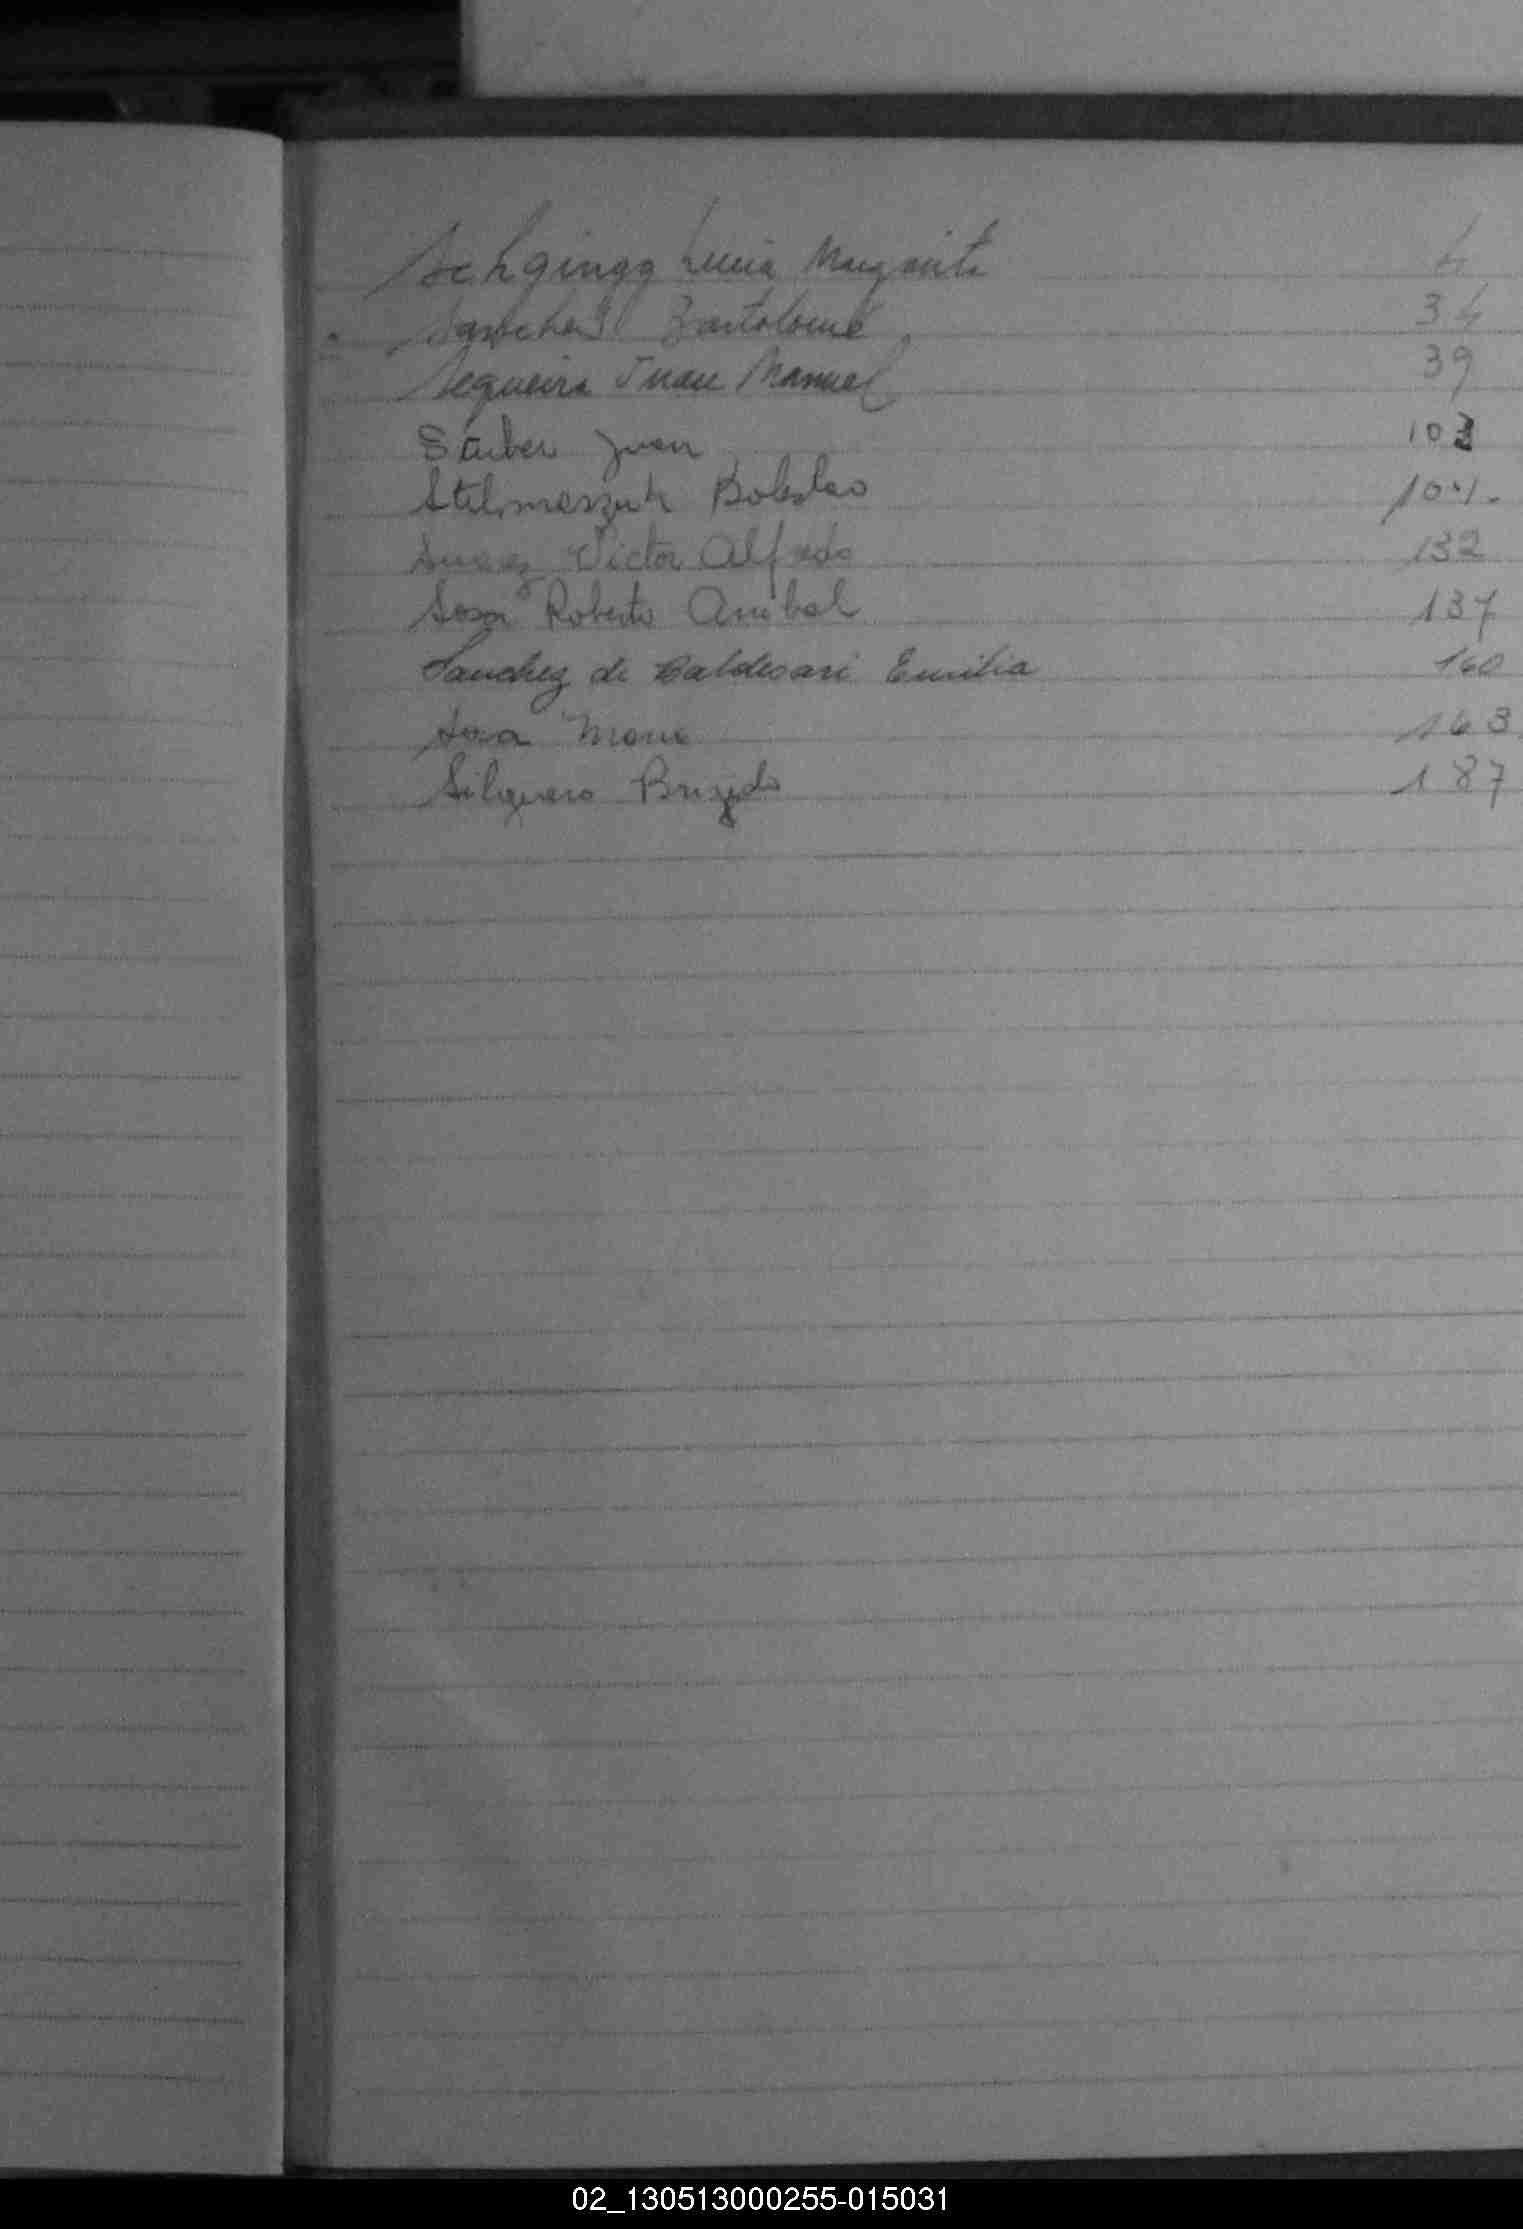 Lucia Margarita 4
Sanchez Bartolomé 34
Sequeira Juan Manuel 39
Juan 103
Boleslao 104.
Suarez Victor Alfredo 132
Sosa Roberto Anibal 137
Sanchez de Baldesari Emilia 160
Sosa 163
Silguero Brigido 187
02_130513000255-015031